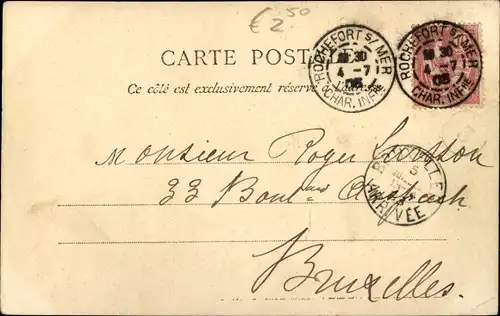 €2.50
CARTE POSTALE
Ce côté est exclusivement réservé à l'adresse
ROCHEFORT S/MER
30
4 -7
05
CHAR. INFRE
ROCHEFORT S/MER
30
4 -7
05
CHAR. INFRE
5
ARRIVÉE
Monsieur Roger
33 Boulevard
Bruxelles.